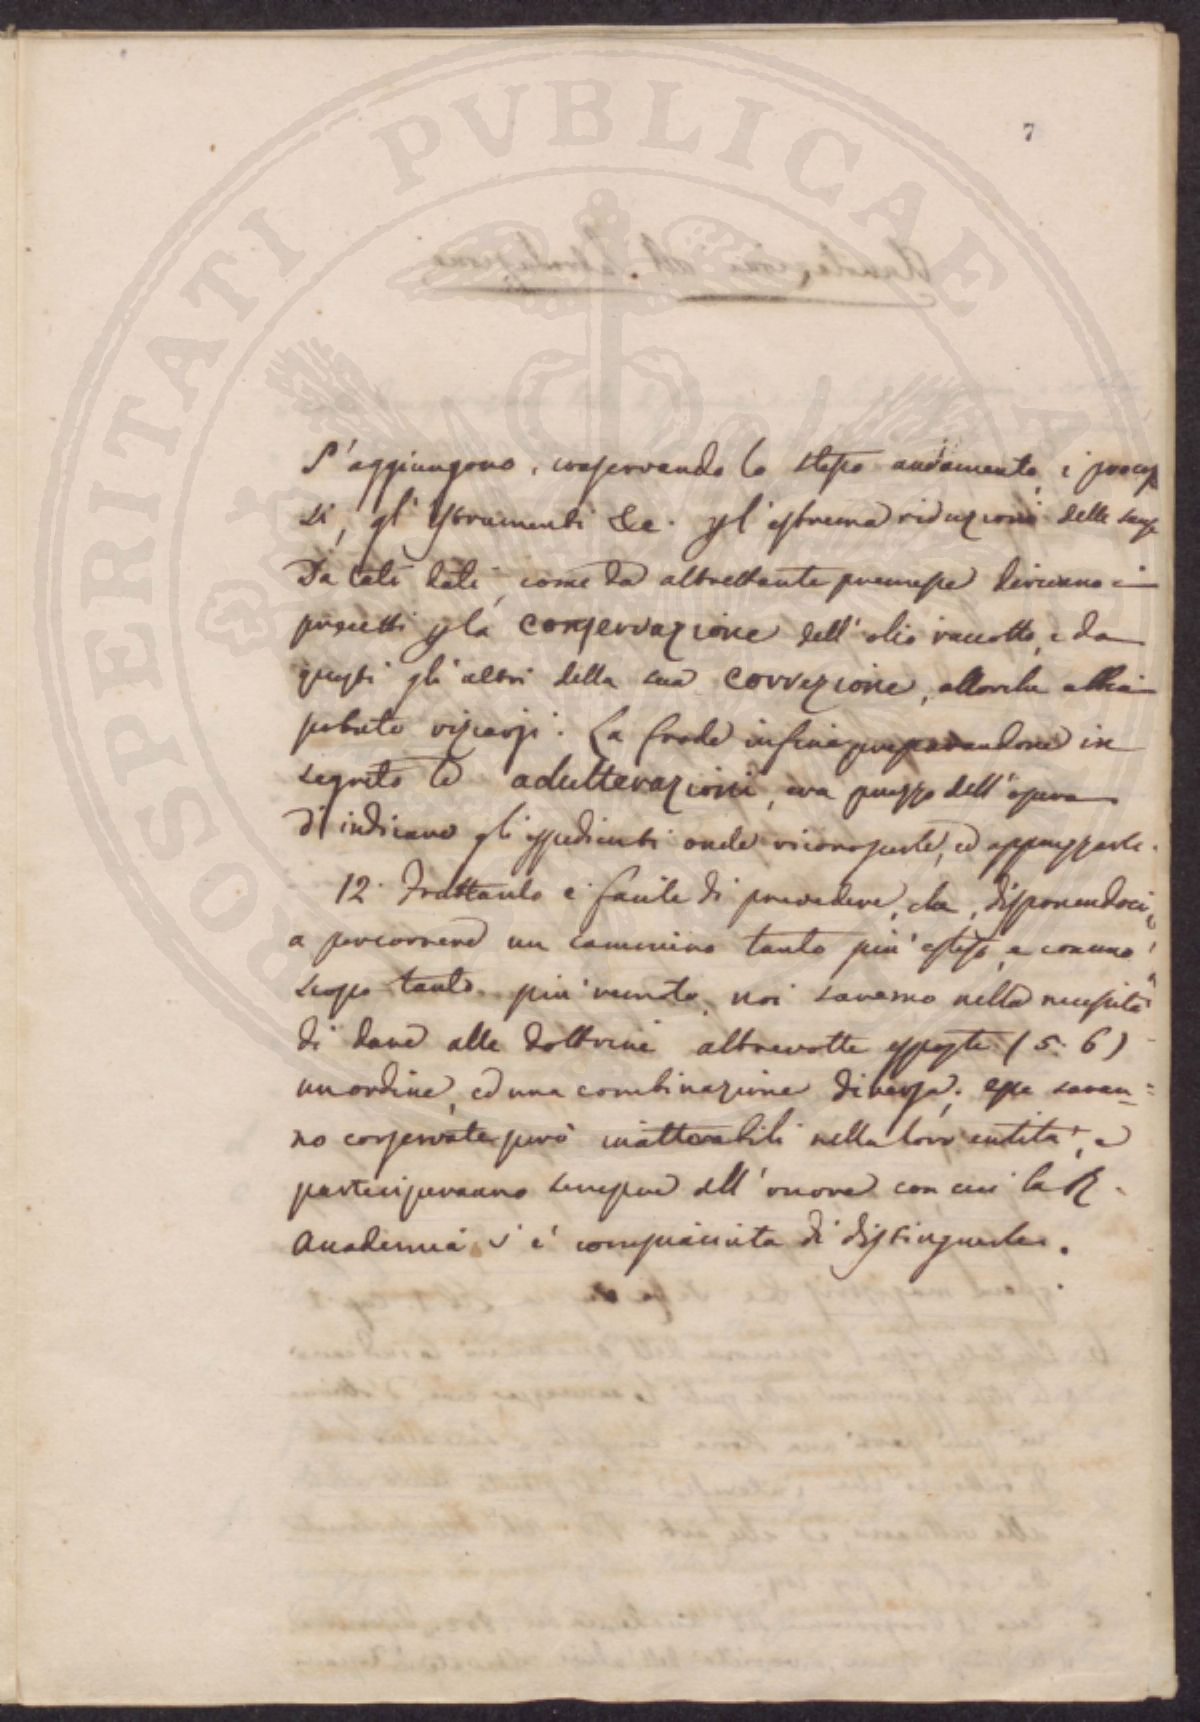 7
S'aggiungono, conservando lo stesso andamento, i proces
si, gl'istrumenti &c. pl'estrema riduzione delle
Da tali dati, come da altrettante premesse derivano i
precetti p la conservazione dell'olio raccolto, e da
questi gli altri della sua correzione, allorche abbia
potuto viziarsi. La frode infine preparandone in
segreto le adulterazioni, era prezzo dell'opera
d'indicare gli espedienti onde riconoscerle, ed apprezzarle.
12. Frattanto è facile di prevedere, che, disponendoci
a percorrere un cammino tanto più esteso, e con uno
scopo tanto più remoto, noi saremo nella necessità
di dare alle dottrine altrevolte esposte (5. 6)
un ordine, ed una combinazione diversa; esse saran=
no conservate però inalterabili nella loro entità, e
parteciperanno sempre all'onore con cui la R.
Accademia s'è compiaciuta di distinguerle.
PROSPERITATI PVBLICAE